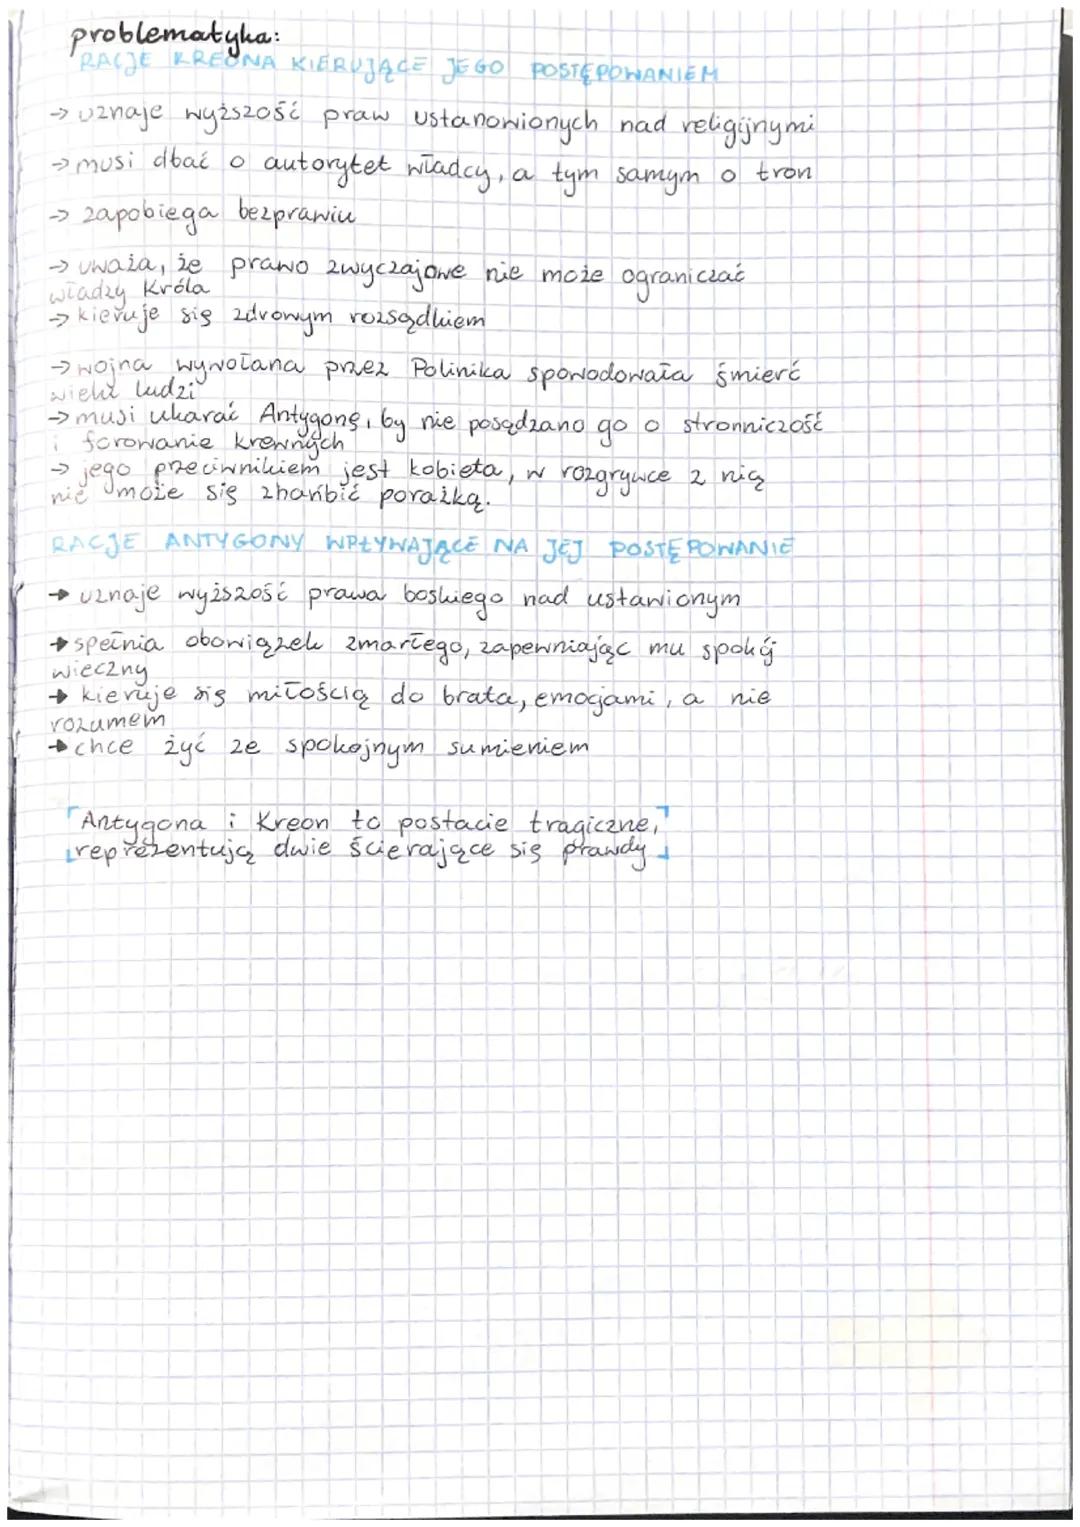 problematyka:
RACJE KREONA KIERUJĄCE JEGO POSTĘPOWANIEM
→ uznaje wyższość praw ustanowionych nad religijnymi
→ musi dbać o autorytet władcy, a tym samym o tron
→ zapobiega bezprawiu
→ uważa, że prawo zwyczajowe nie może ograniczać
władzy Króla
→ kieruje się zdrowym rozsądkiem
→ wojna wywołana przez Polinika spowodowała śmierć
wielu ludzi
→ musi ukarać Antygonę, by nie posądzano go o stronniczość
i forowanie krewnych
→ jego przeciwnikiem jest kobieta, w rozgrywce z nią
nie może się zhańbić porażką.
RACJE ANTYGONY WPŁYWAJĄCE NA JEJ POSTĘPOWANIE
→ uznaje wyższość prawa boskiego nad ustawionym
→ spełnia obowiązek zmarłego, zapewniając mu spokój
wieczny
→ kieruje się miłością do brata, emocjami, a nie
rozumem
→ chce żyć ze spokojnym sumieniem
Antygona i Kreon to postacie tragiczne,
reprezentują dwie ścierające się prawdy